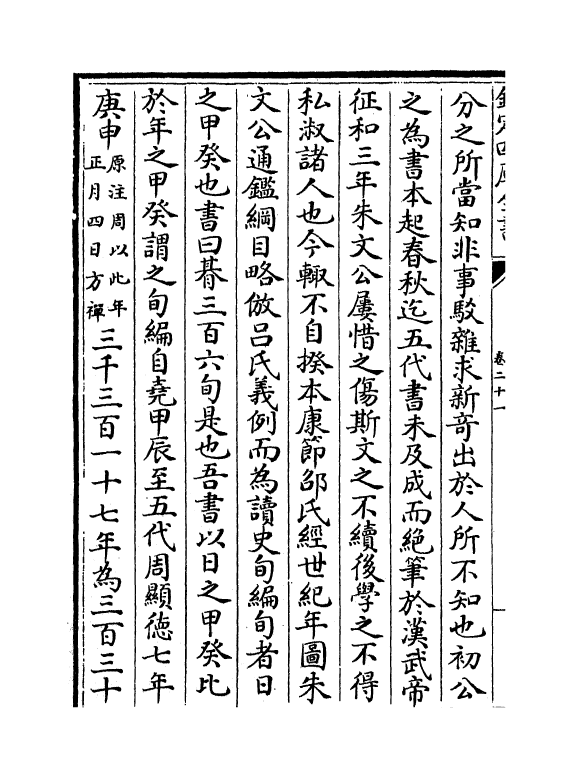 欽定四庫全書
卷二十一
分之所當知非事駁雜求新奇出於人所不知也初公
之為書本起春秋迄五代書未及成而絶筆於漢武帝
征和三年朱文公屢惜之傷斯文之不續後學之不得
私淑諸人也今輙不自揆本康節邵氏經世紀年圖朱
文公通鑑綱目略倣吕氏義例而為讀史旬編旬者日
之甲癸也書曰朞三百六旬是也吾書以日之甲癸比
於年之甲癸謂之旬編自堯甲辰至五代周顯徳七年
庚申原注周以此年正月四日方禪三千三百一十七年為三百三十